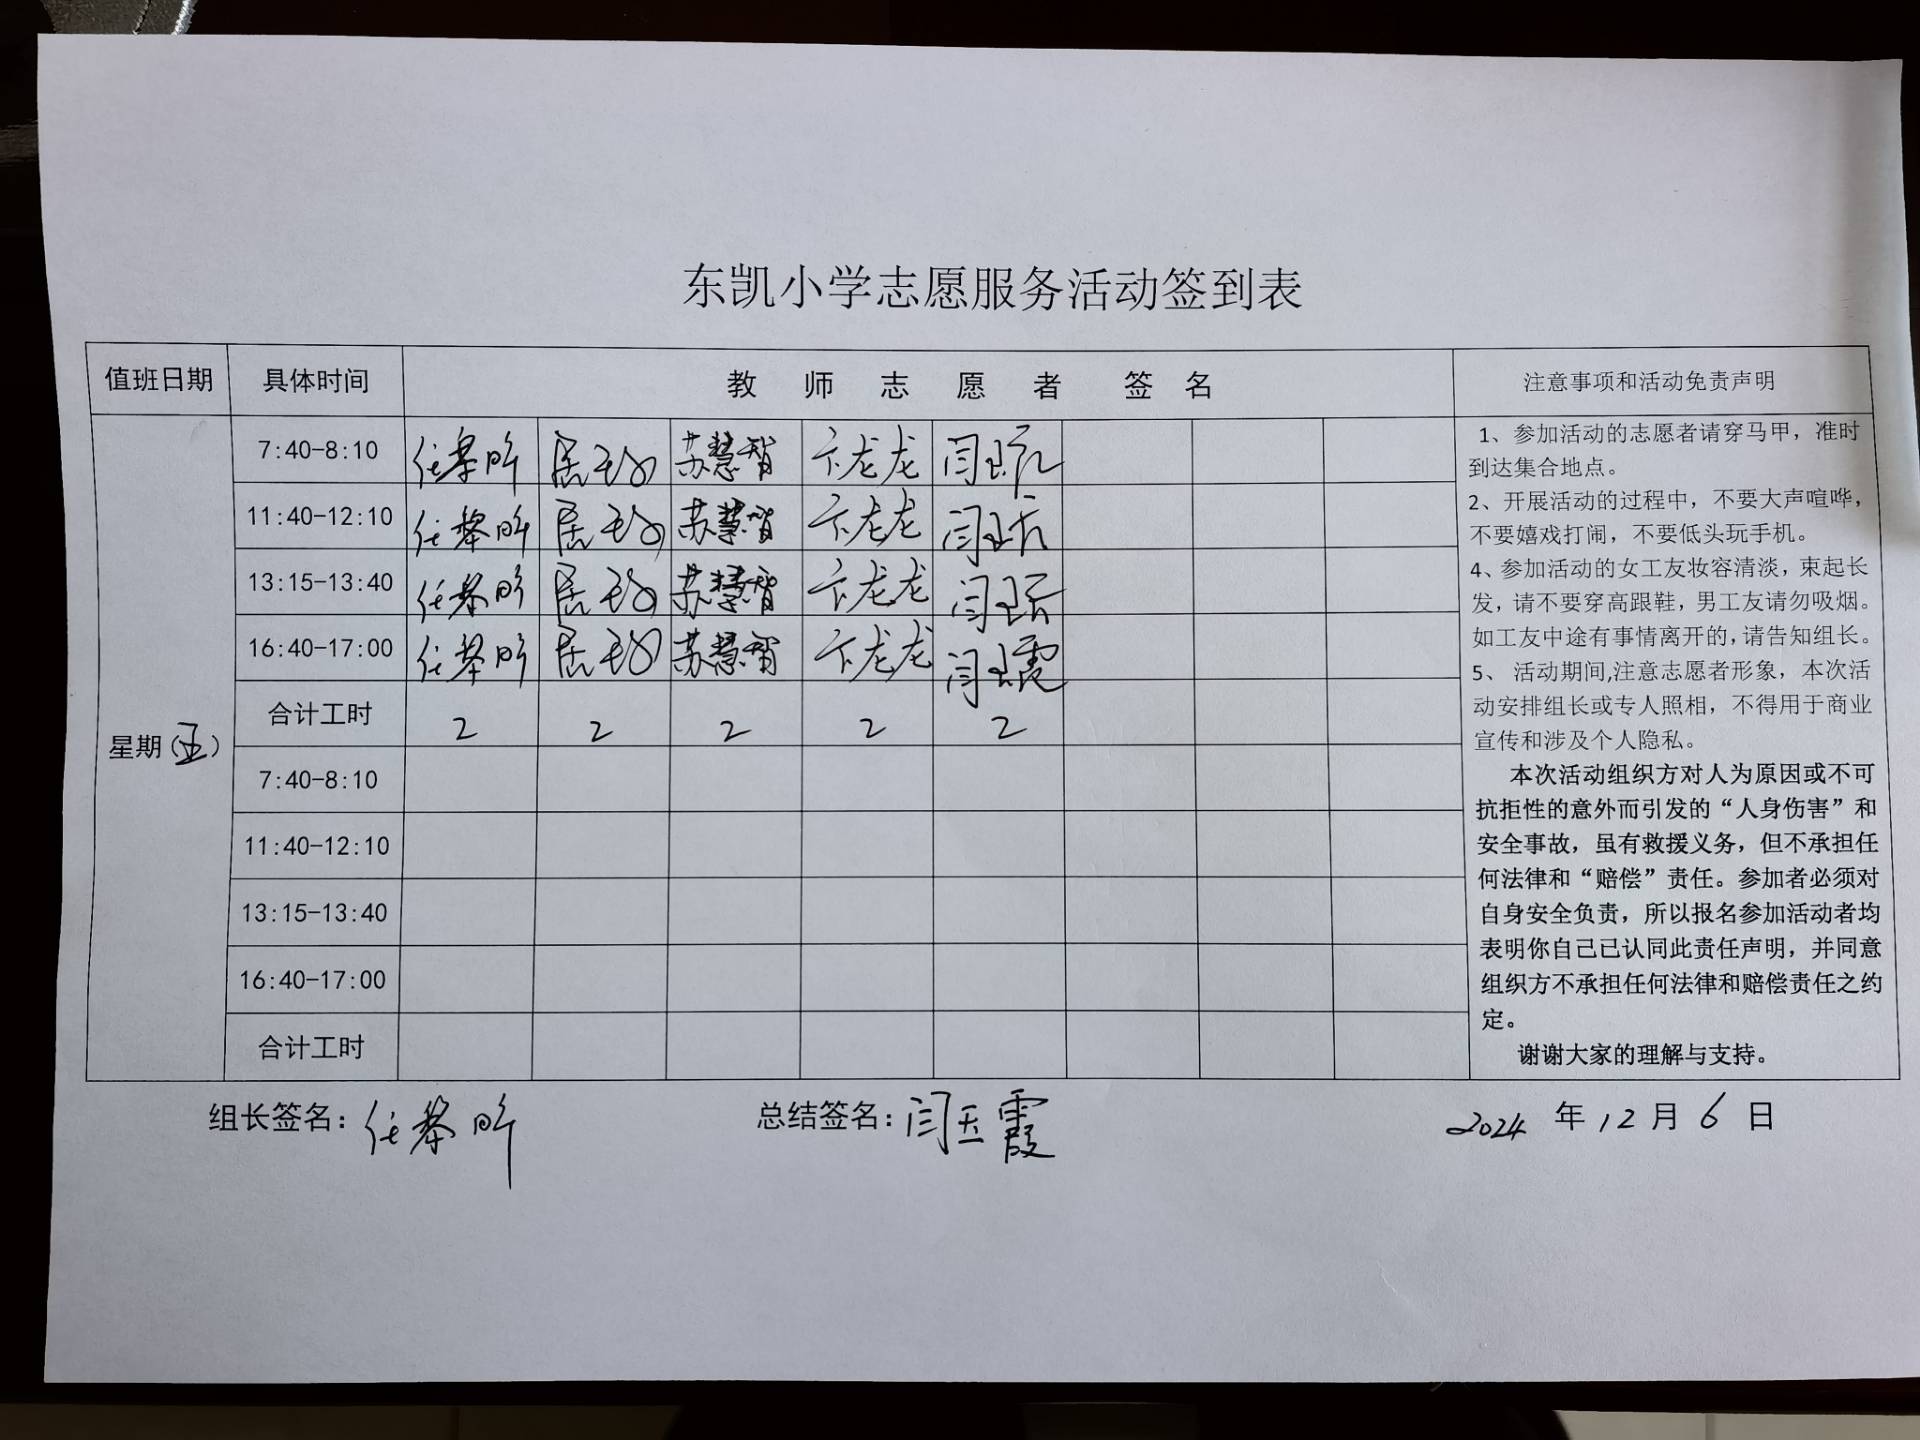 东凯小学志愿服务活动签到表
值班日期 具体时间 教 师 志 愿 者 签 名 注意事项和活动免责声明
星期(五)
7:40-8:10 苏慧智 卞龙龙 闫玉霞
11:40-12:10 苏慧智 卞龙龙 闫玉霞
13:15-13:40 苏慧智 卞龙龙 闫玉霞
16:40-17:00 苏慧智 卞龙龙 闫玉霞
合计工时 2 2 2 2 2
7:40-8:10
11:40-12:10
13:15-13:40
16:40-17:00
合计工时
1、参加活动的志愿者请穿马甲，准时
到达集合地点。
2、开展活动的过程中，不要大声喧哗，
不要嬉戏打闹，不要低头玩手机。
4、参加活动的女工友妆容清淡，束起长
发，请不要穿高跟鞋，男工友请勿吸烟。
如工友中途有事情离开的，请告知组长。
5、 活动期间,注意志愿者形象，本次活
动安排组长或专人照相，不得用于商业
宣传和涉及个人隐私。
本次活动组织方对人为原因或不可
抗拒性的意外而引发的“人身伤害”和
安全事故，虽有救援义务，但不承担任
何法律和“赔偿”责任。参加者必须对
自身安全负责，所以报名参加活动者均
表明你自己已认同此责任声明，并同意
组织方不承担任何法律和赔偿责任之约
定。
谢谢大家的理解与支持。
组长签名： 总结签名：闫玉霞 2024 年 12 月 6 日